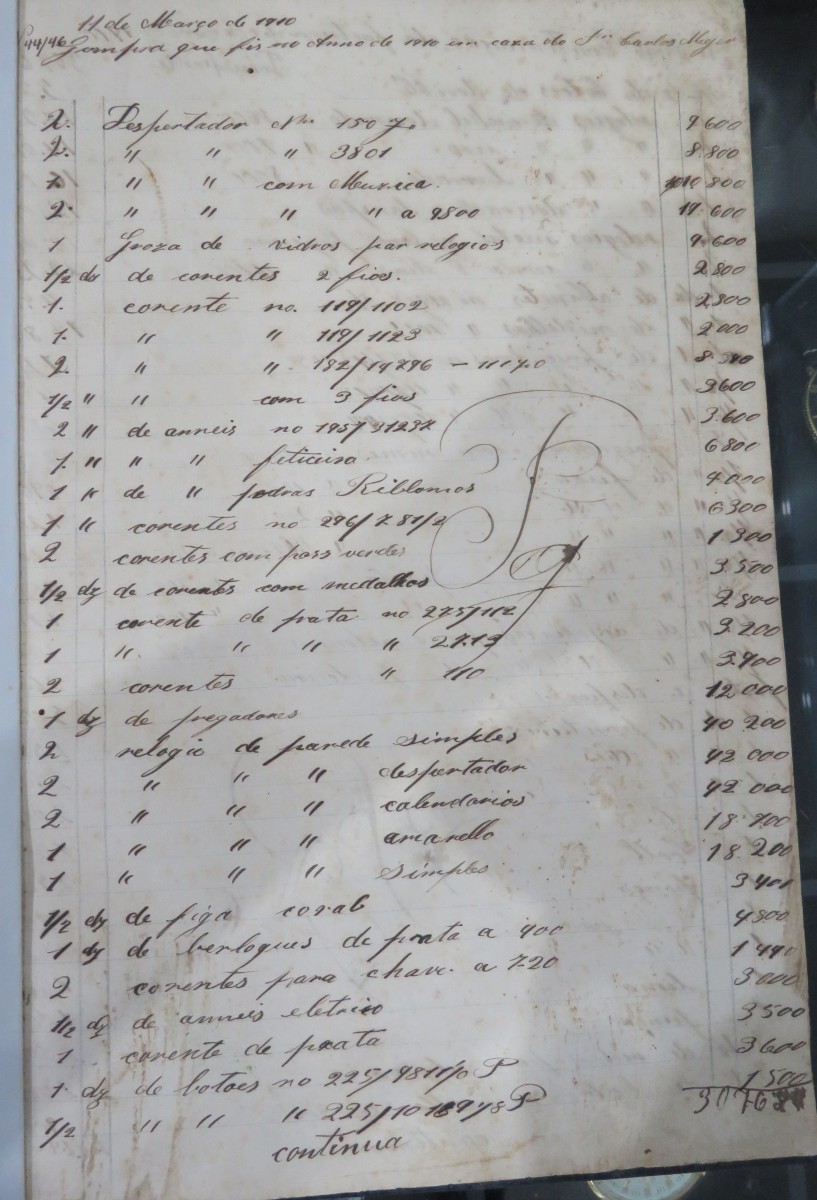 11 de Março de 1910
44/46 Compra que fis no Anno de 1910 em caza do Snr Carlos Meyer
2. Despertador No 150 7. 9.600
2. " " " 3801 8.800
1. " " com Muzica. 10.800
2. " " " " a 9800 19.600
1 Groza de vidros par relogios 9.600
1/2 dz de corentes 2 fios. 2.800
1. corente no. 119/1102 2.300
1. " " 119/1123 2.000
2. " ". 182/14296 –
1/2 " " com 3 fios 3.600
2 " de anneis no 3.600
1. " " " fiticeira 6.800
1 " de " pedras 4.000
1 " corentes no 296/7.81/2 6.300
2 corentes com pass verdes 1.300
1/2 dz de corentes com medalhas 3.500
1 corente de prata no 275/112 2.800
1 ". " " " 27.13 3.200
2 corentes " 110 3.700
1 dz de pregadores 12.000
2 relogio de parede simples 40.200
2 " " " despertador 42.000
2 " " " calendarios 42.000
1 " " " amarello 18.700
1 " " " simples 18.200
1/2 dz de figa coral 3.400
1 dz de berloques de prata a 400 4.800
2 corentes para chave. a 720 1.440
1/2 dz de anneis eletrico 3.000
1 corente de prata 3.500
1. dz de botoes no 225/9811/0 P 3.600
1/2 " " " 225/10 P 1.500
continua